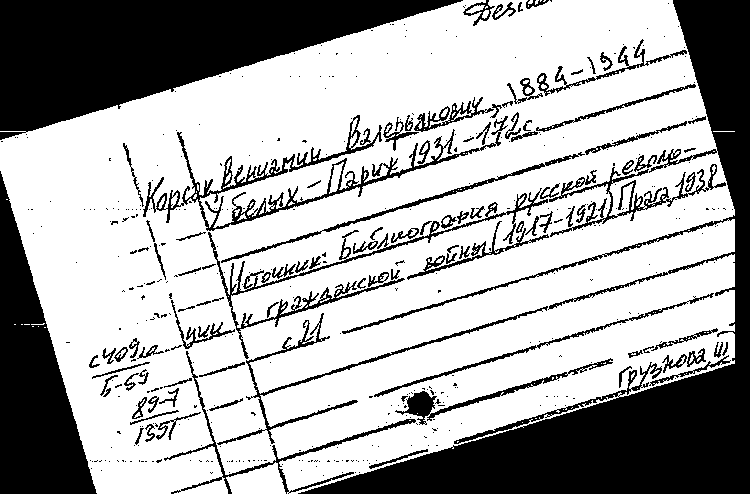 Desid
Корсак Вениамин Валерьянович, 1884-1944
У белых. - Париж, 1931. - 172 с.
Источник: Библиография русской револю-
ции и гражданской войны (1917-1921) Прага, 1938
с. 21
Б-59
89-7
1391
Грузнова Ш